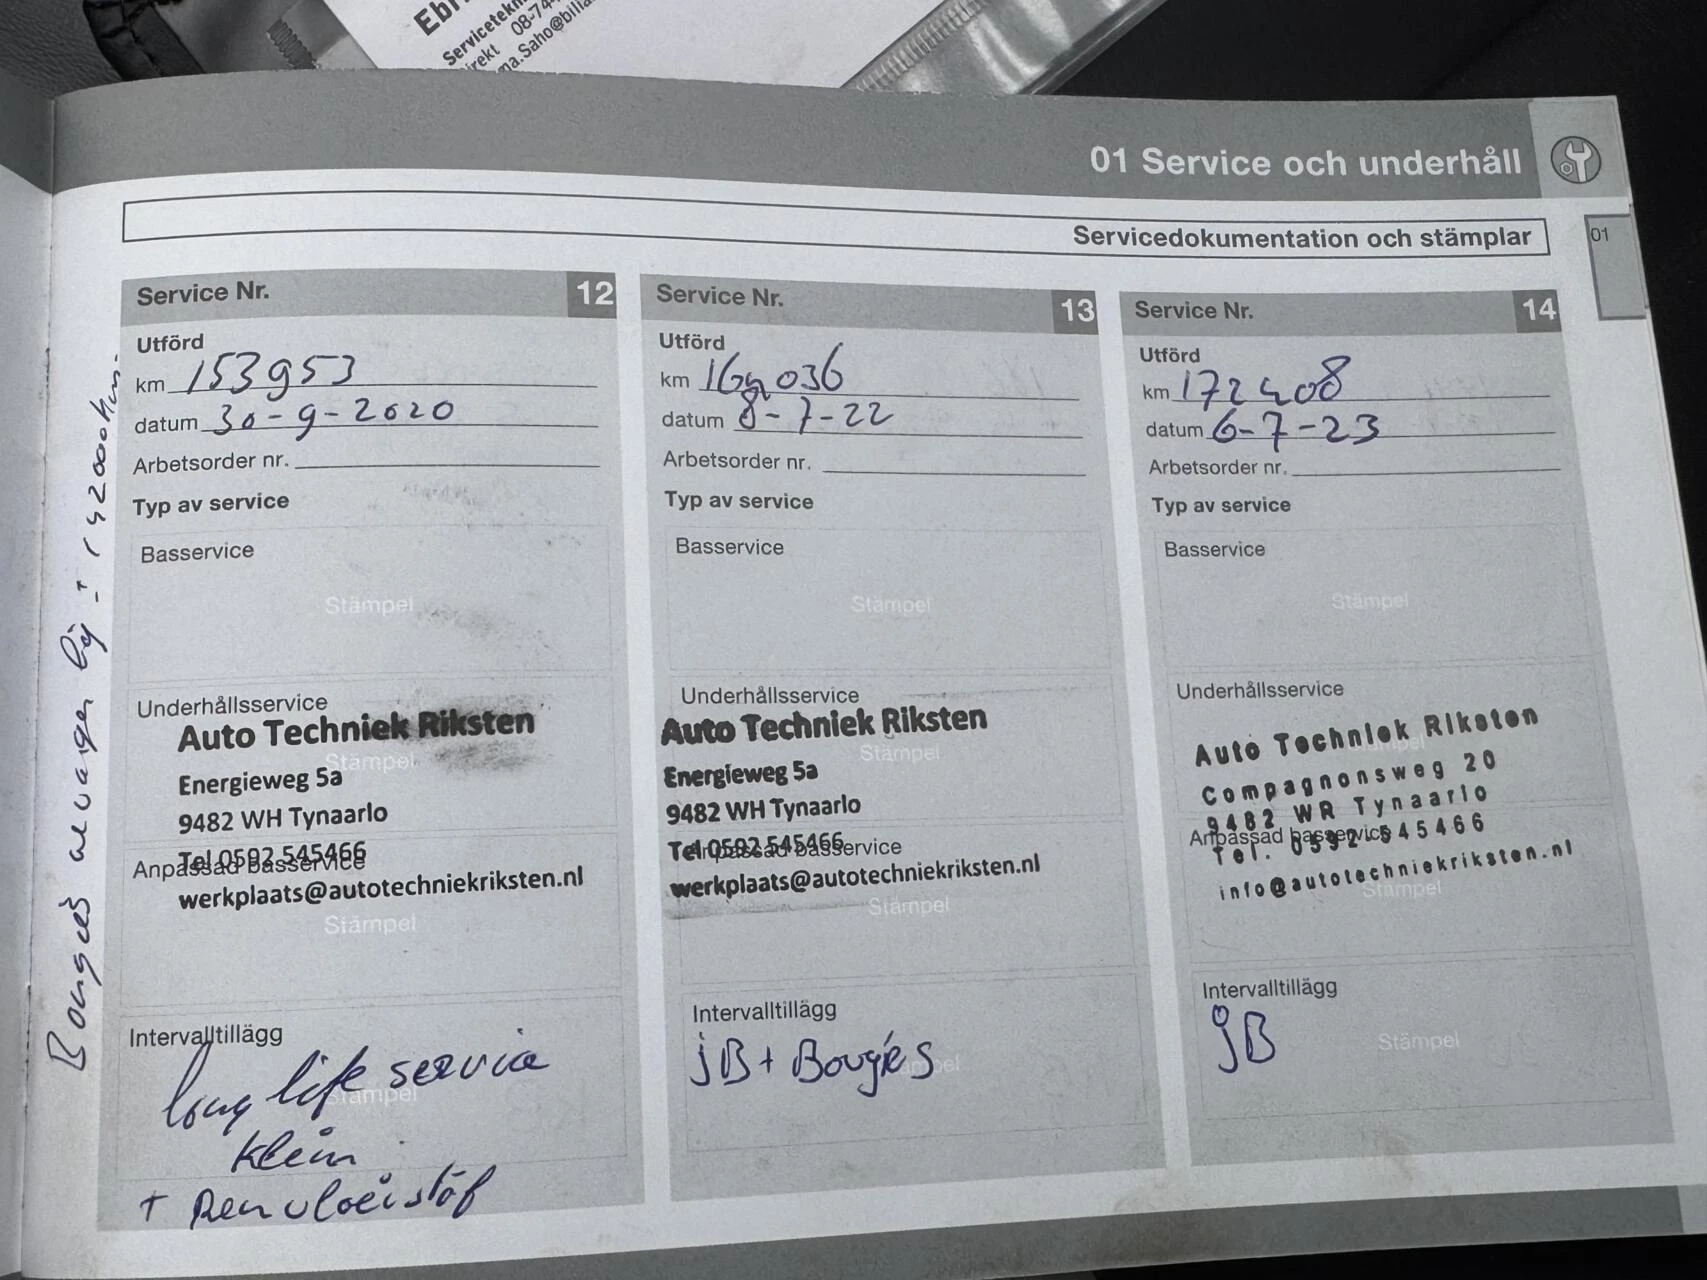 Servicetekn
irekt 08-74
ma.Saho@bilia
01 Service och underhåll
Servicedokumentation och stämplar
01
Service Nr. 12
Utförd
km 153953
datum 30-9-2020
Arbetsorder nr.
Typ av service
Basservice
Stämpel
Underhållsservice
Auto Techniek Riksten
Stämpel
Energieweg 5a
9482 WH Tynaarlo
Tel 0592 545466
Anpassad basservice
werkplaats@autotechniekriksten.nl
Stämpel
Intervalltillägg
long life service
Stämpel
klein
+ Remvloeistof
Service Nr. 13
Utförd
km 164036
datum 8-7-22
Arbetsorder nr.
Typ av service
Basservice
Stämpel
Underhållsservice
Auto Techniek Riksten
Stämpel
Energieweg 5a
9482 WH Tynaarlo
Tel 0592 545466
Anpassad basservice
werkplaats@autotechniekriksten.nl
Stämpel
Intervalltillägg
jB + Bougies
Stämpel
Service Nr. 14
Utförd
km 172408
datum 6-7-23
Arbetsorder nr.
Typ av service
Basservice
Stämpel
Underhållsservice
Auto Techniek Riksten
Stämpel
Compagnonsweg 20
9482 WR Tynaarlo
Anpassad basservice
Tel. 0592 545466
info@autotechniekriksten.nl
Stämpel
Intervalltillägg
jB
Stämpel
Bougies vervangen bij ± 142000 km.